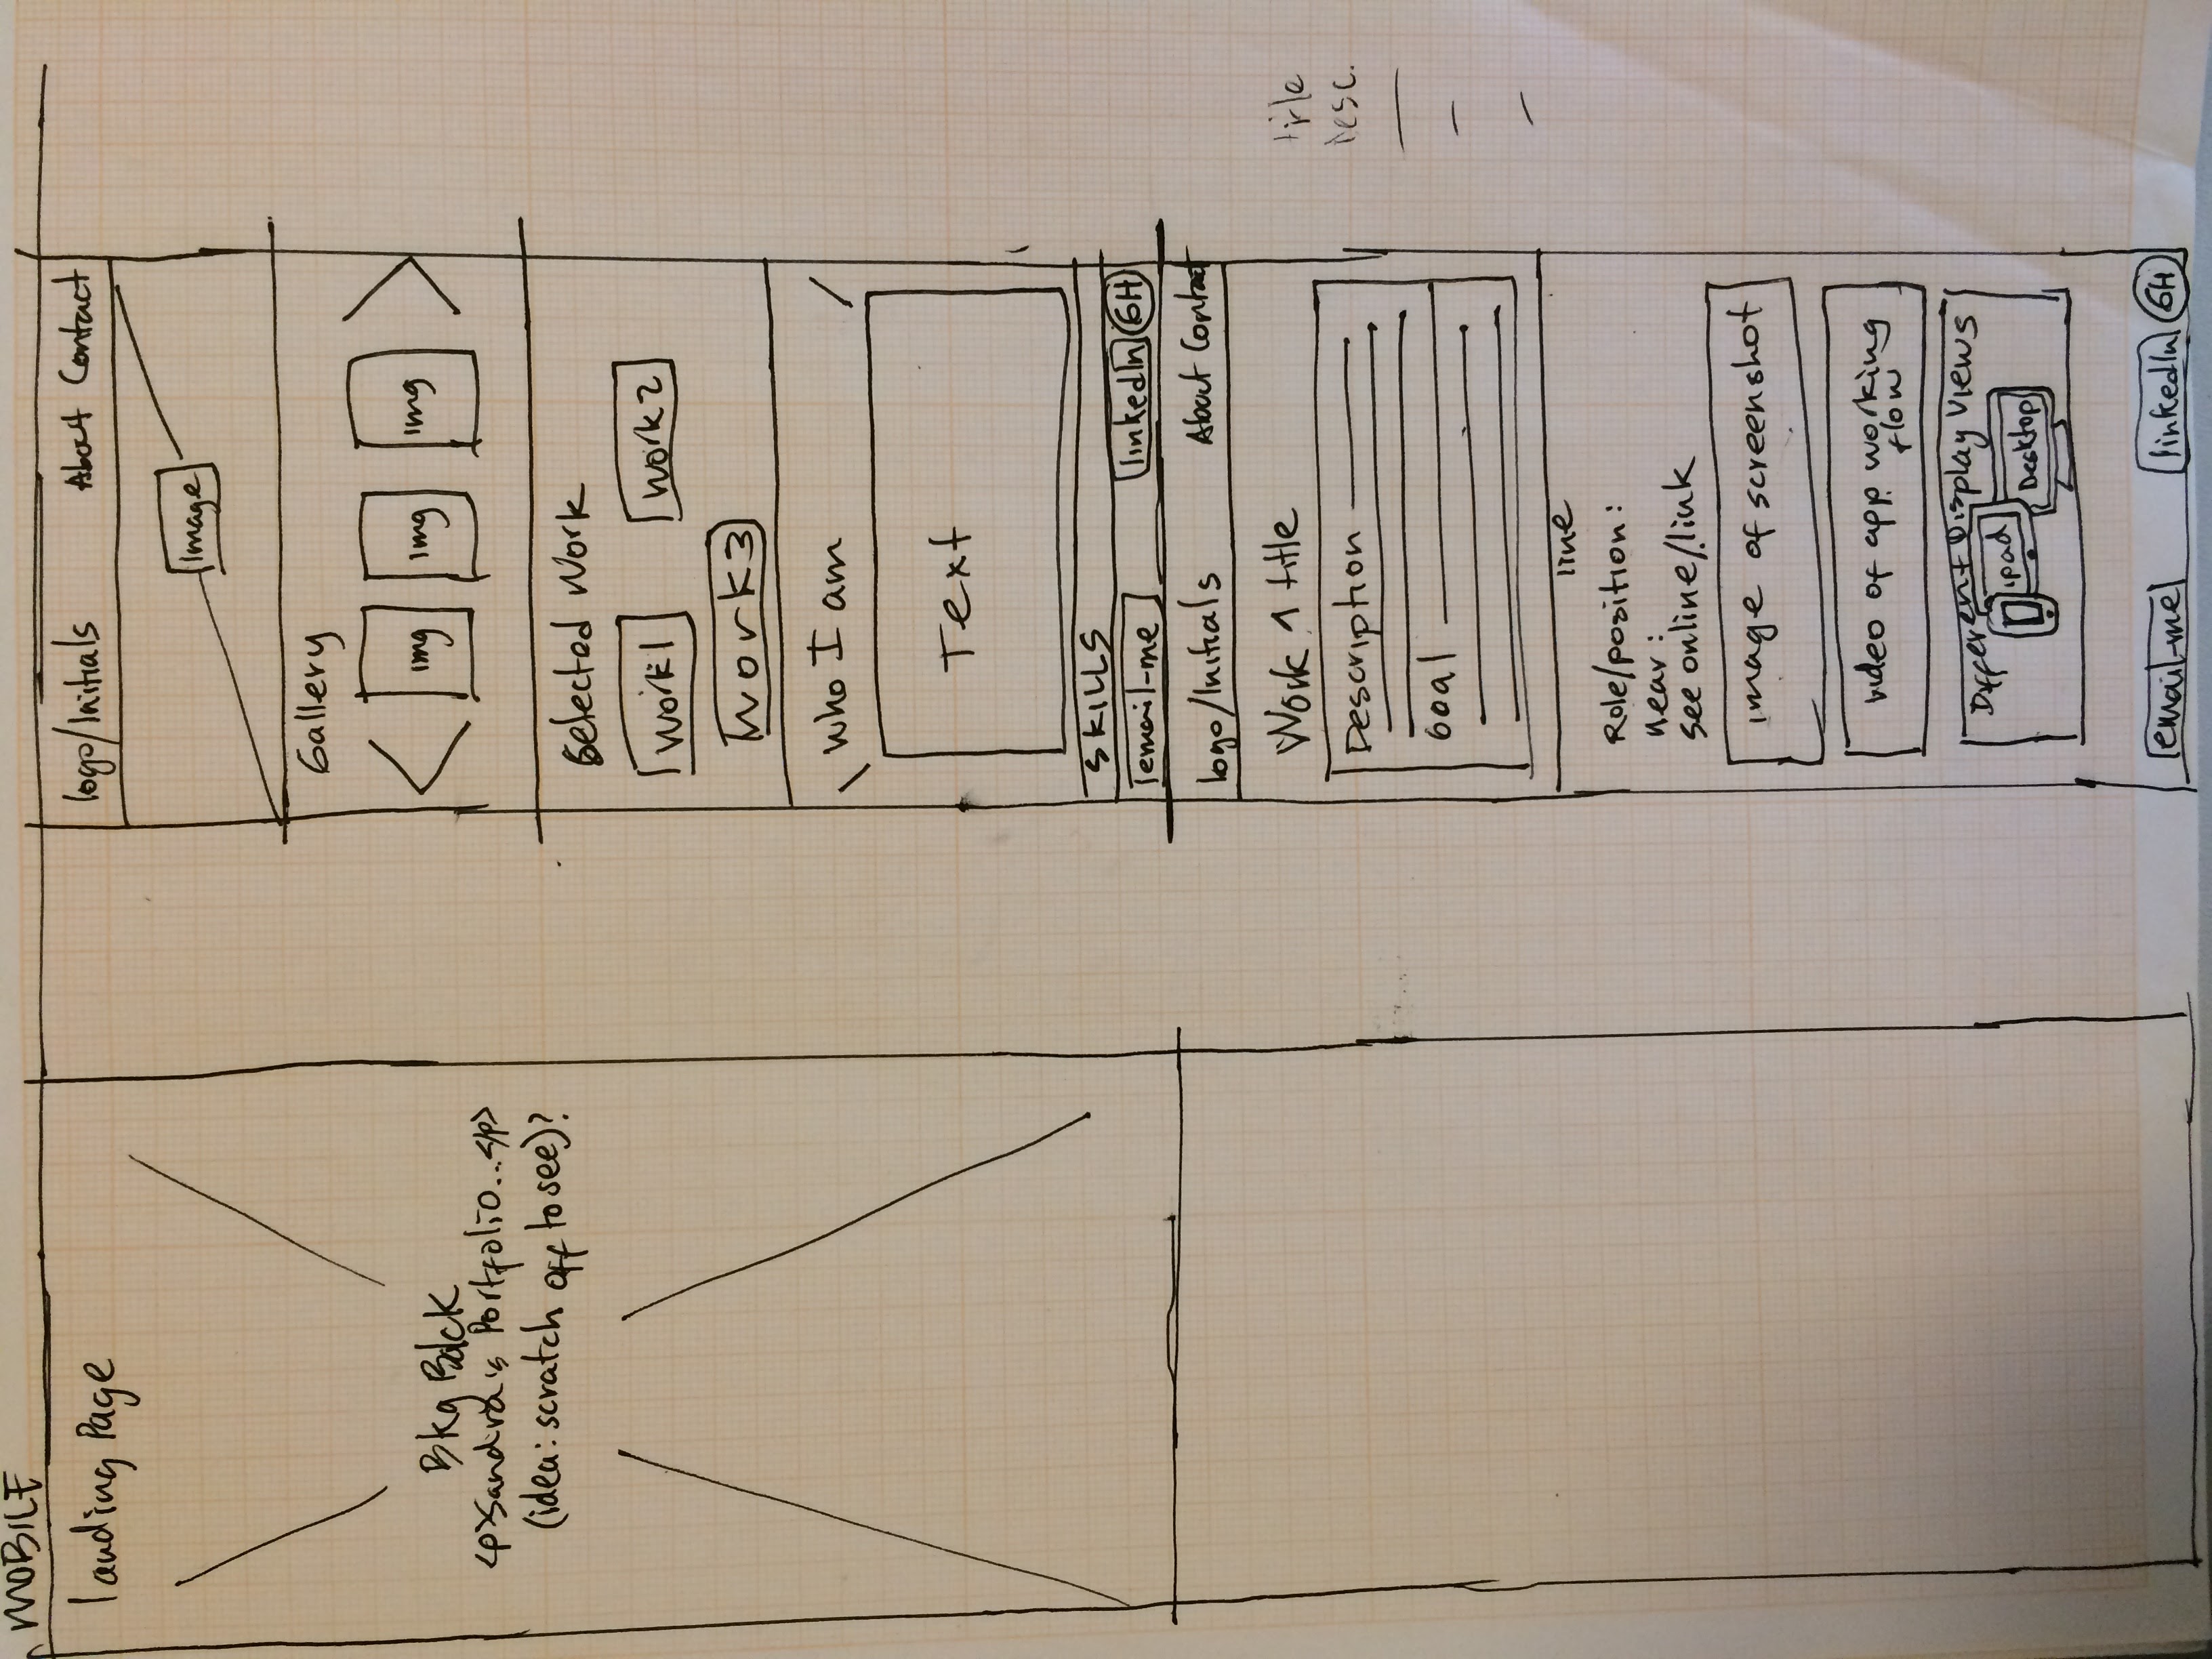 MOBILE
landing Page
Bkg Balck
<p>Sandra's Portfolio...</p>
(idea: scratch off to see)?
logo/Initials About Contact
Image
Gallery
img img img
Selected Work
work1 work2
work3
who I am
Text
SKILLS
email-me linkedIn GH
logo/Initials About Contact
Work 1 title
Description
Goal
line
Role/position:
see online/link
image of screenshot
video of app working
flow
Different Display Views
ipad
Desktop
email-me linkedIn GH
title
Desc.